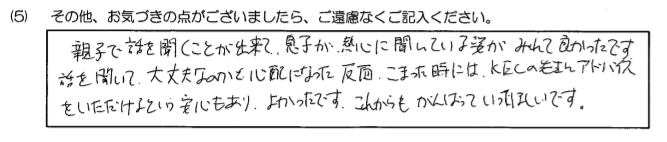 (5) その他、お気づきの点がございましたら、ご遠慮なくご記入ください。
親子で話を聞くことが出来て、息子が熱心に聞いている姿がみれて良かったです
話を聞いて、大丈夫なのかと心配になった反面、こまった時には、KECの先生にアドバイス
をいただけるという安心もあり、よかったです。これからもがんばっていってほしいです。